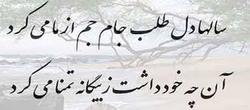 سالها دل طلب جام جم از ما می کرد
آن چه خود داشت ز بیگانه تمنا می کرد